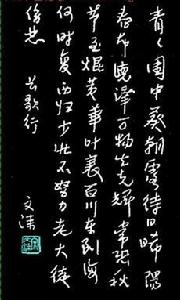 青々園中葵朝露待日晞陽
春布德泽万物生光輝常恐秋
节至焜黄華叶衰百川东到海
何时复西归少壮不努力老大徒
伤悲 长歌行
文